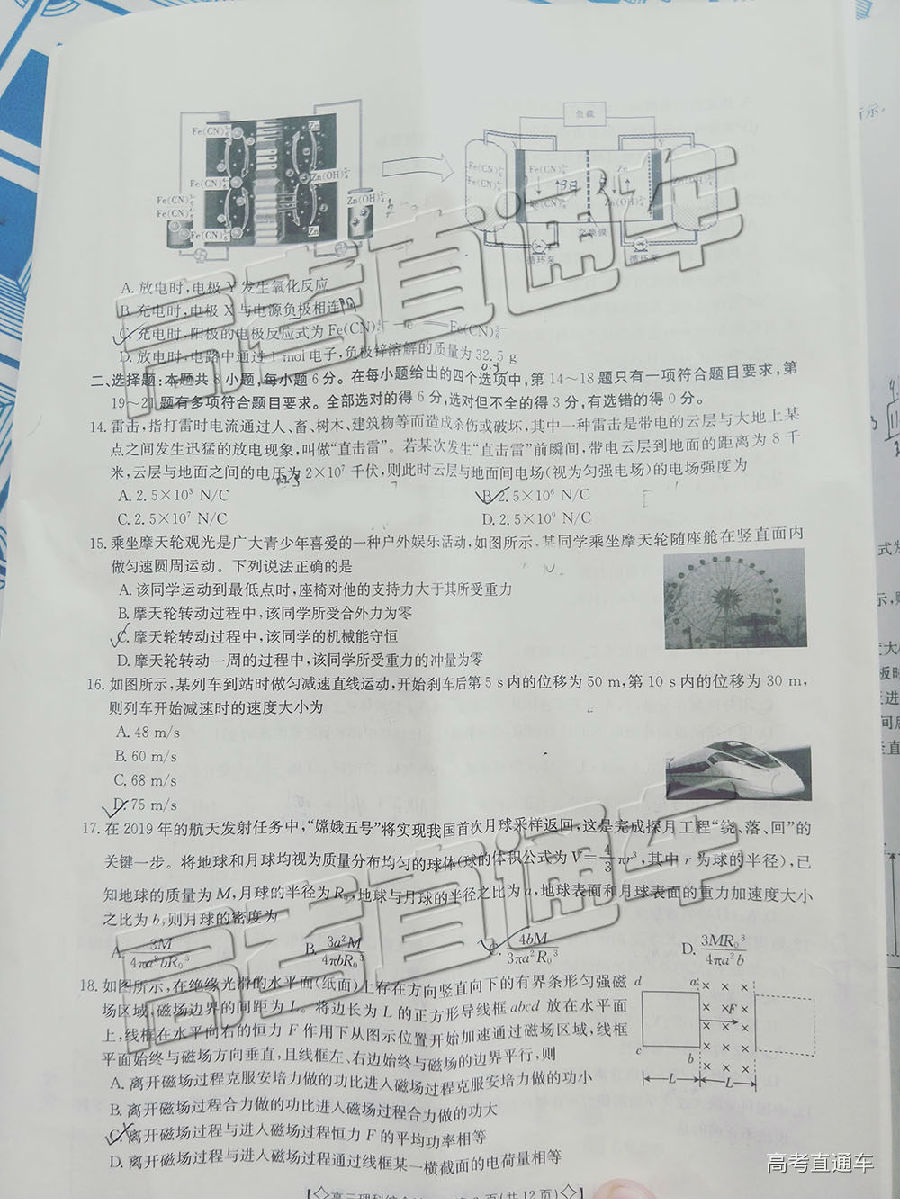 负载
Fe(CN)
Fe(CN)
Zn
Zn(OH)
Fe(CN)
Fe(CN)
Zn(OH)
Zn
循环泵
A. 放电时,电极 Y 发生氧化反应
B. 充电时,电极 X 与电源负极相连
C. 充电时,阳极的电极反应式为 Fe(CN) Fe(CN)
D. 放电时,电路中通过 1 mol 电子,负极锌溶解的质量为 32.5 g
二、选择题:本题共 8 小题,每小题 6 分。在每小题给出的四个选项中,第 14~18 题只有一项符合题目要求,第
19~21 题有多项符合题目要求。全部选对的得 6 分,选对但不全的得 3 分,有选错的得 0 分。
14. 雷击,指打雷时电流通过人、畜、树木、建筑物等而造成杀伤或破坏,其中一种雷击是带电的云层与大地上某
点之间发生迅猛的放电现象,叫做“直击雷”。若某次发生“直击雷”前瞬间,带电云层到地面的距离为 8 千
米,云层与地面之间的电压为 2×10⁷ 千伏,则此时云层与地面间电场(视为匀强电场)的电场强度为
A. 2.5×10³ N/C B. 2.5×10⁶ N/C
C. 2.5×10⁷ N/C D. 2.5×10⁹ N/C
15. 乘坐摩天轮观光是广大青少年喜爱的一种户外娱乐活动,如图所示,某同学乘坐摩天轮随座舱在竖直面内
做匀速圆周运动。下列说法正确的是
A. 该同学运动到最低点时,座椅对他的支持力大于其所受重力
B. 摩天轮转动过程中,该同学所受合外力为零
C. 摩天轮转动过程中,该同学的机械能守恒
D. 摩天轮转动一周的过程中,该同学所受重力的冲量为零
16. 如图所示,某列车到站时做匀减速直线运动,开始刹车后第 5 s 内的位移为 50 m,第 10 s 内的位移为 30 m,
则列车开始减速时的速度大小为
A. 48 m/s
B. 60 m/s
C. 68 m/s
D. 75 m/s
17. 在 2019 年的航天发射任务中,“嫦娥五号”将实现我国首次月球采样返回,这是完成探月工程“绕、落、回”的
关键一步。将地球和月球均视为质量分布均匀的球体(球的体积公式为 V=4/3 πr³,其中 r 为球的半径),已
知地球的质量为 M,月球的半径为 R₀,地球与月球的半径之比为 a,地球表面和月球表面的重力加速度大小
之比为 b,则月球的密度为
A. 3M/4πa²bR₀³ B. 3a²M/4πbR₀³ C. 4bM/3πa²R₀³ D. 3MR₀³/4πa²b
18. 如图所示,在绝缘光滑的水平面(纸面)上存在方向竖直向下的有界条形匀强磁
场区域,磁场边界的间距为 L。将边长为 L 的正方形导线框 abcd 放在水平面
上,线框在水平向右的恒力 F 作用下从图示位置开始加速通过磁场区域,线框
平面始终与磁场方向垂直,且线框左、右边始终与磁场的边界平行,则
d a
F
c b
L L
A. 离开磁场过程克服安培力做的功比进入磁场过程克服安培力做的功小
B. 离开磁场过程合力做的功比进入磁场过程合力做的功大
C. 离开磁场过程与进入磁场过程恒力 F 的平均功率相等
D. 离开磁场过程与进入磁场过程通过线框某一横截面的电荷量相等
高考直通车
高考直通车
高考直通车